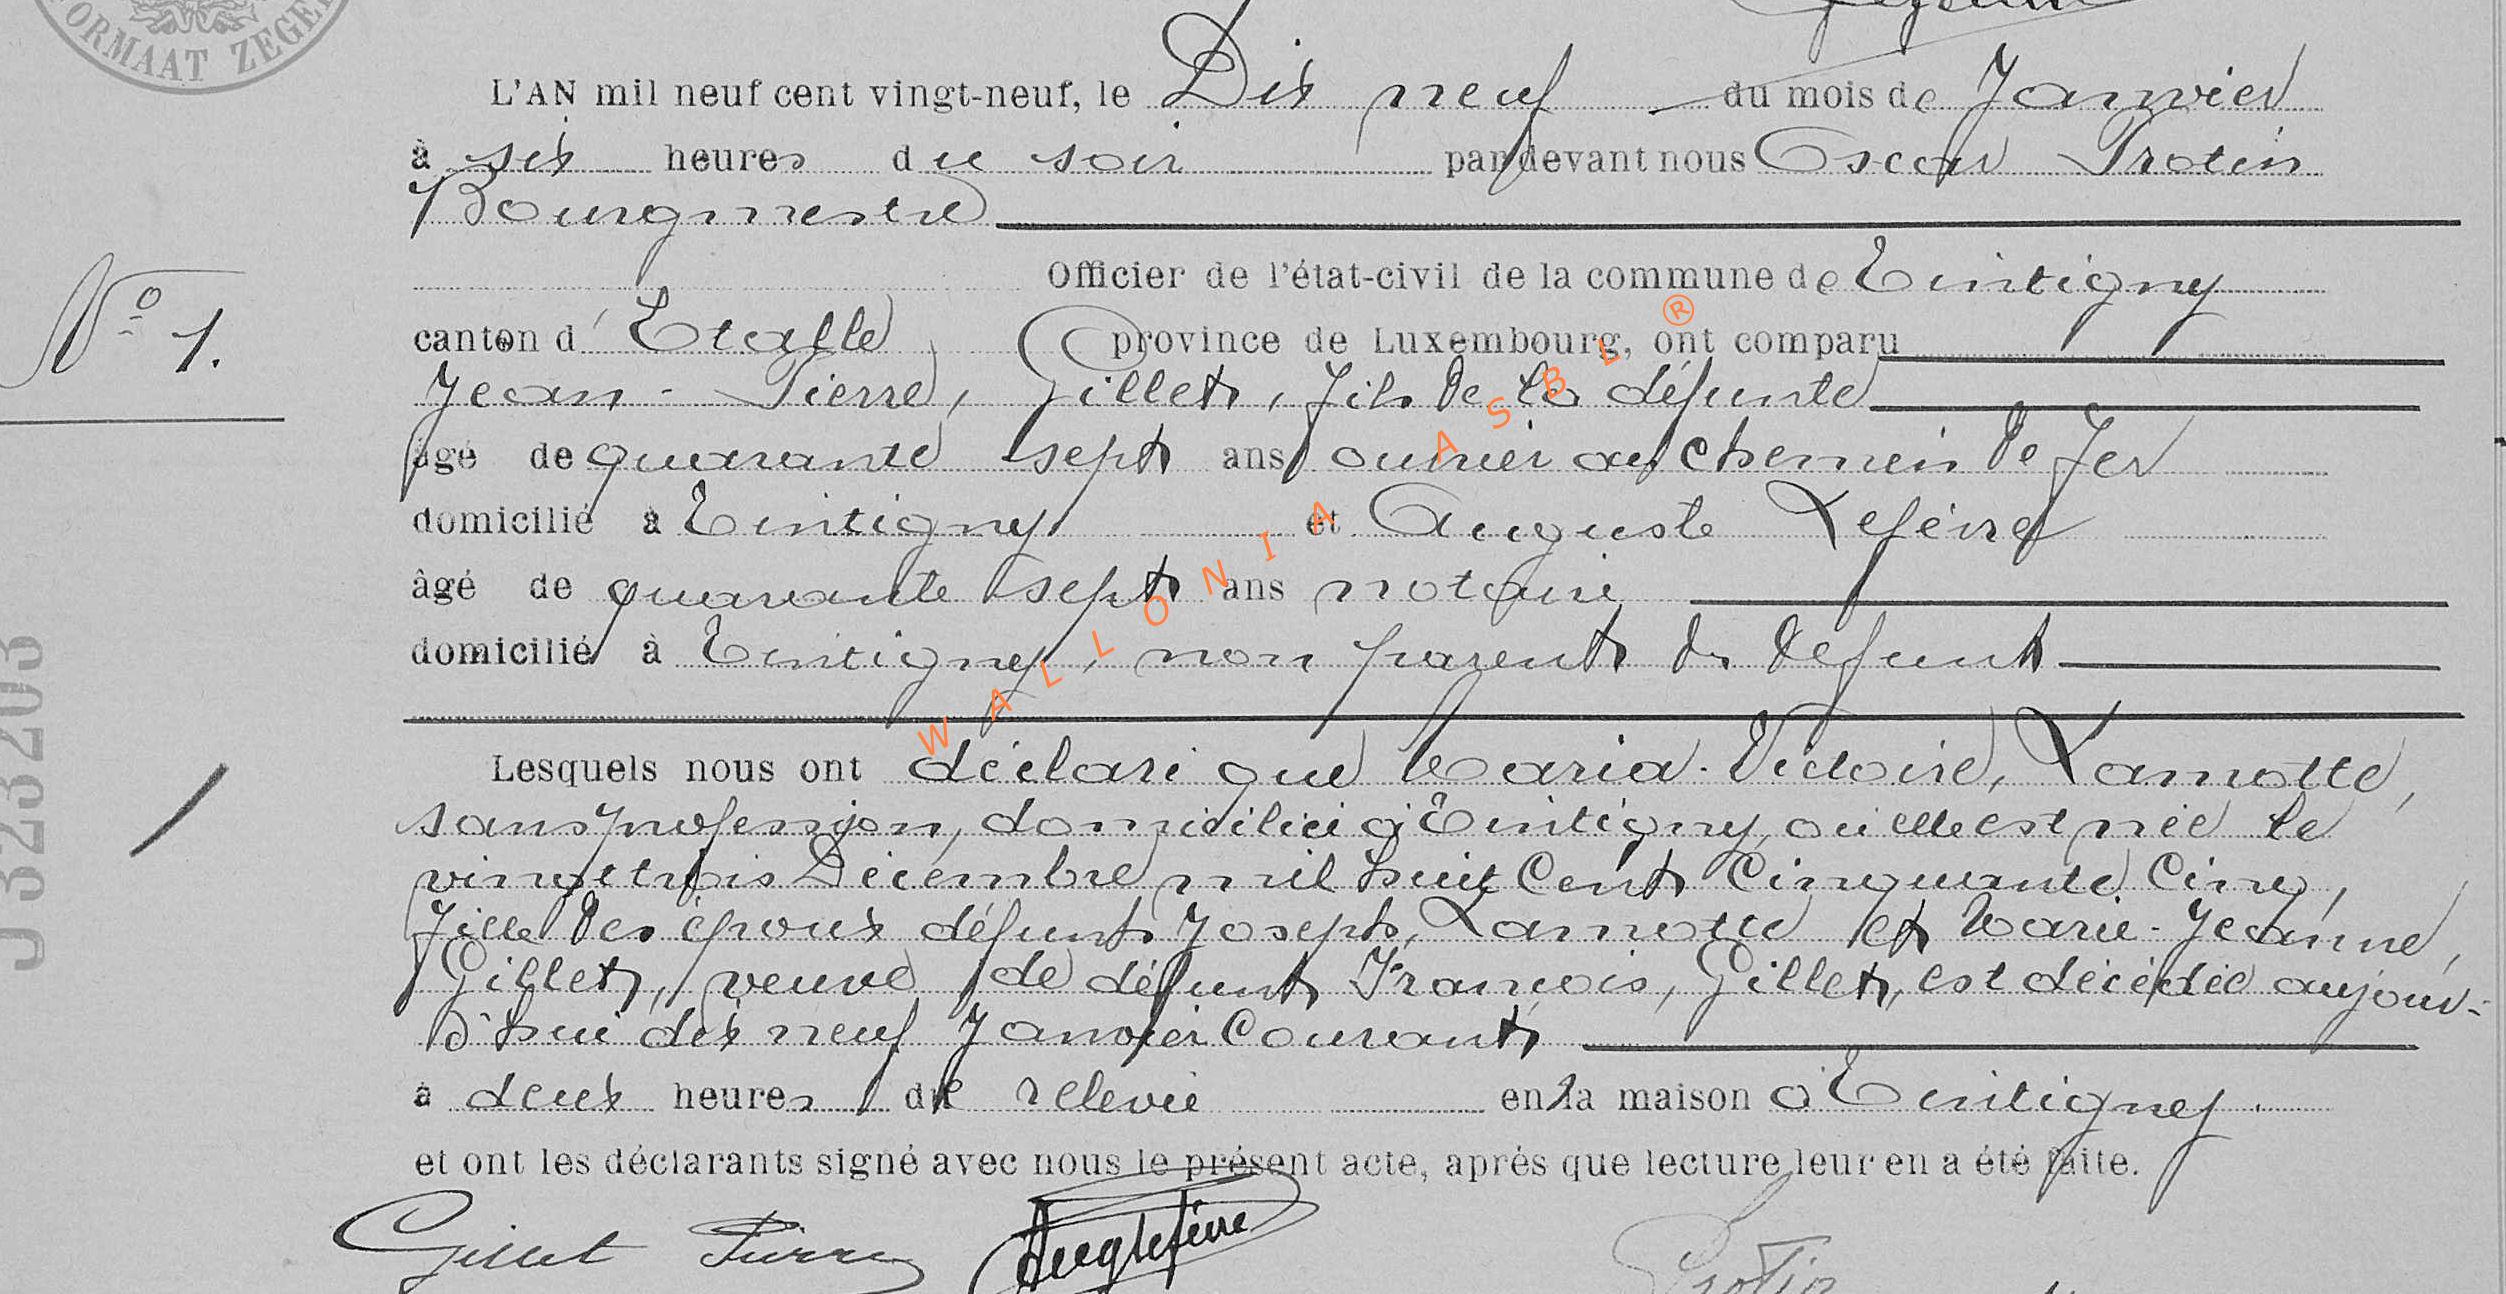 FORMAAT ZEGEL
L'AN mil neuf cent vingt-neuf, le Dix neuf du mois de Janvier
à six heures du soir par devant nous Oscar Protin
Bourgmestre
Officier de l'état-civil de la commune de Tintigny
N° 1.
canton d'Etalle province de Luxembourg, ont comparu
Jean-Pierre, Gillet, fils de la défunte
âgé de quarante sept ans ouvrier au chemin de fer
domicilié à Tintigny et Auguste Lefèvre
âgé de quarante sept ans notaire
domicilié à Tintigny, non parent du défunt
Lesquels nous ont déclaré que Maria-Victoire, Lamotte,
sans profession, domiciliée à Tintigny, où elle est née le
vingt trois Décembre mil huit Cent Cinquante Cinq,
fille des époux défunts Joseph, Lamotte et Marie-Jeanne,
Gillet, veuve de défunt François, Gillet, est décédée aujour-
d'hui dix neuf Janvier Courant
à deux heures de relevée en la maison à Tintigny.
et ont les déclarants signé avec nous le présent acte, après que lecture leur en a été faite.
Gillet Pierre Aug Lefèvre Protin
323203
WALLONIA ASBL ®